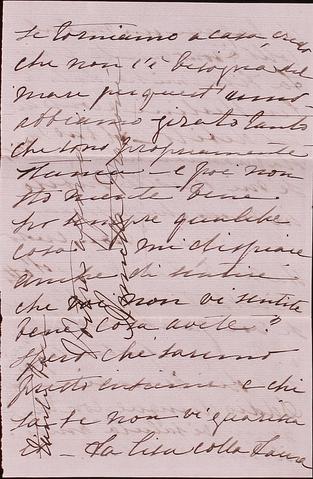 se torniamo a casa, credo
che non c'è bisogno del
mare per quest'anno
abbiamo girato tanto
che sono propriamente
stanca - e poi non
sto mica bene
ho sempre qualche
cosa. Mi dispiace
anche di sentire
che voi non vi sentite
bene, cosa avete?
spero che saremo
presto insieme e chi
sa se non vi guarirà
- La Lisa colla Laura